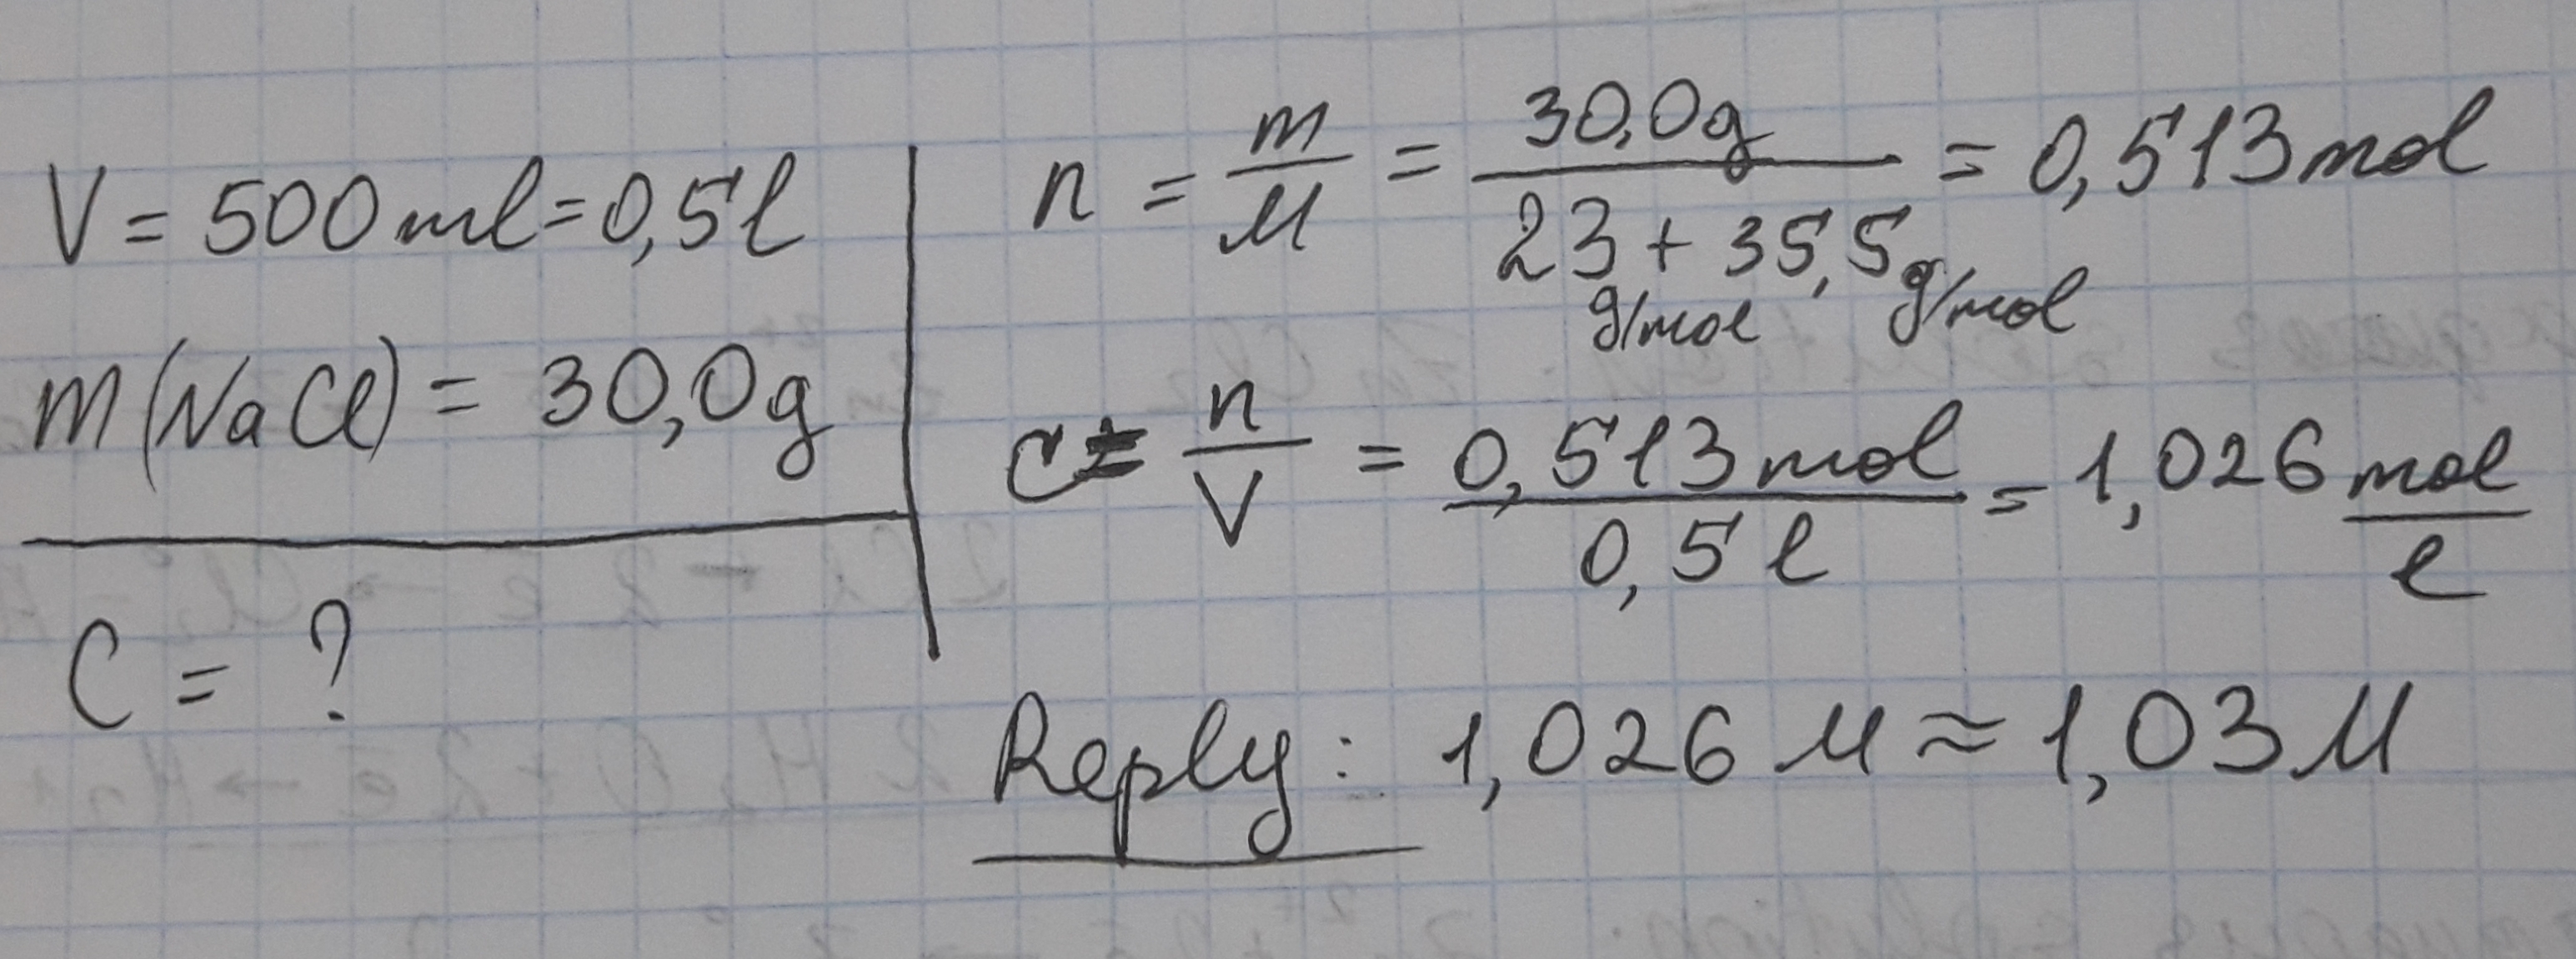 V = 500 ml = 0,5 l
m (NaCl) = 30,0 g
C = ?
n = m/M = 30,0g / 23 g/mol + 35,5 g/mol = 0,513 mol
C = n/V = 0,513 mol / 0,5 l = 1,026 mol/l
Reply: 1,026 M ≈ 1,03 M